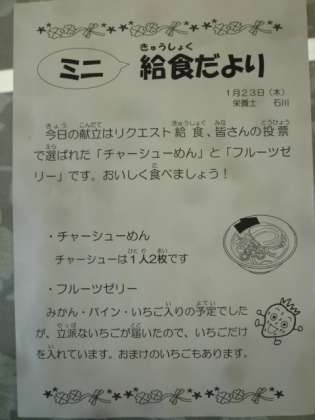 ミニ 給食だより
1月23日（木）
栄養士　石川
今日の献立はリクエスト給食、皆さんの投票
で選ばれた「チャーシューめん」と「フルーツゼ
リー」です。おいしく食べましょう！
・チャーシューめん
チャーシューは1人2枚です
・フルーツゼリー
みかん・パイン・いちご入りの予定でした
が、立派ないちごが届いたので、いちごだけ
を入れています。おまけのいちごもあります。